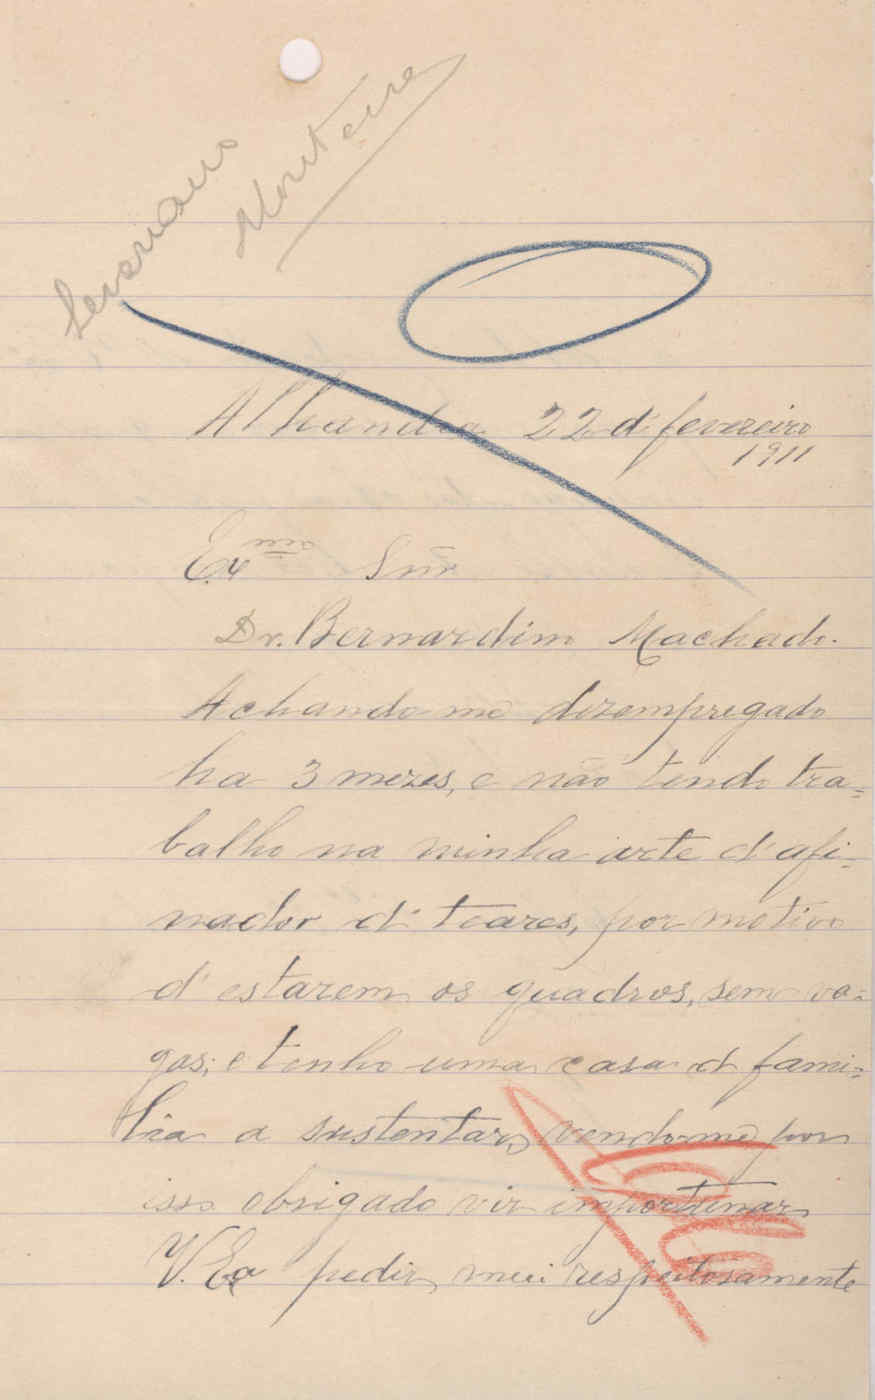 Severiano
Monteiro
Alhandra 22 d. fevereiro
1911
Ex.mo Snr.
Dr. Bernardim Machado.
Achando me dezempregado
ha 3 mezes, e não tendo tra=
balho na minha arte d'afi=
nador d' teares, por motivo
d' estarem os quadros, sem va=
gas; e tenho uma casa d fami=
lia a sustentar, vendo-me por
isso obrigado vir importunar
V. Ex.a pedir, mui respeitosamente